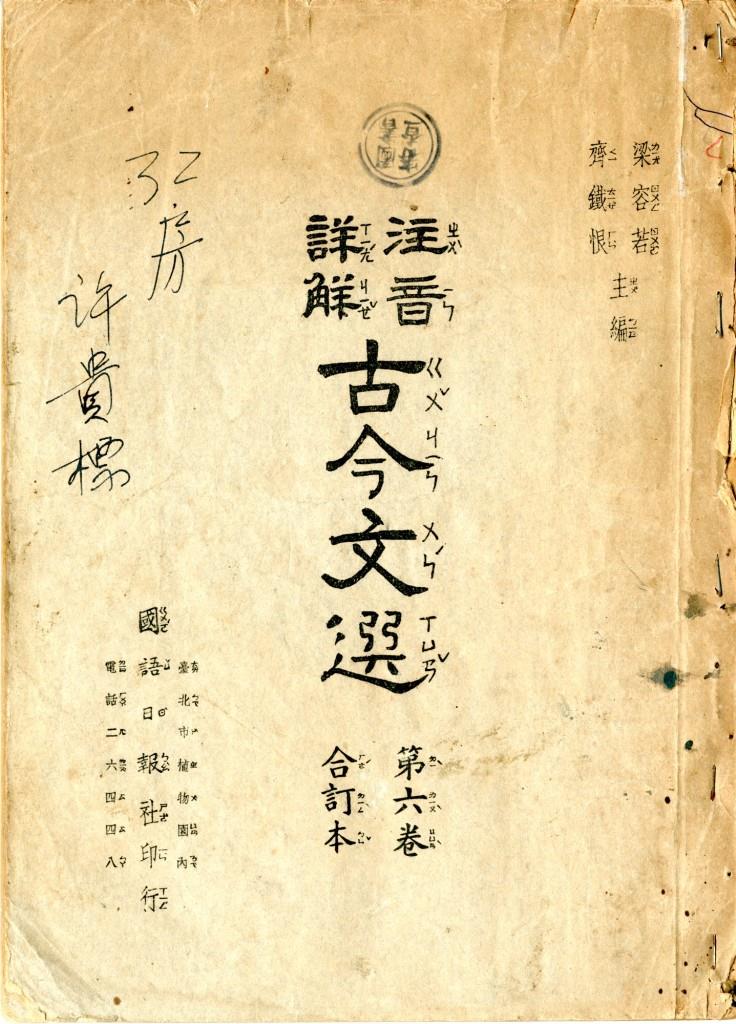 梁容若
齊鐵恨
主編
注音
詳解
古今文選
第六卷
合訂本
臺北市植物園內
國語日報社印行
電話二六四四八
許貴標